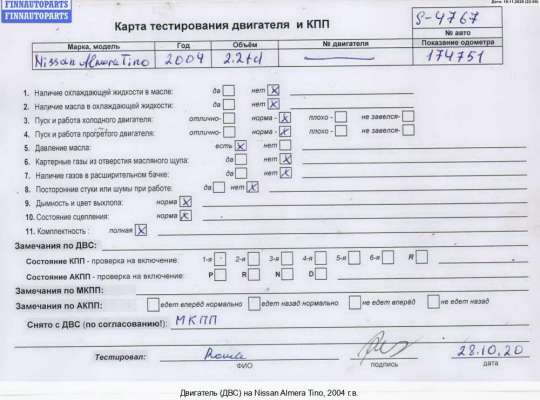 Дата: 19.11.2020 (23:59)
FINNAUTOPARTS
FINNAUTOPARTS
Карта тестирования двигателя и КПП
S-4767
№ авто
Марка, модель Год Объём № двигателя Показание одометра
Nissan Almera Tino 2004 2.2td — 174751
1. Наличие охлаждающей жидкости в масле: да нет X
2. Наличие масла в охлаждающей жидкости: да нет X
3. Пуск и работа холодного двигателя: отлично- норма - X плохо - не завелся-
4. Пуск и работа прогретого двигателя: отлично- норма - X плохо - не завелся-
5. Давление масла: есть X нет
6. Картерные газы из отверстия масляного щупа: да нет X
7. Наличие газов в расширительном бачке: да нет X
8. Посторонние стуки или шумы при работе: да нет X
9. Дымность и цвет выхлопа: норма X
10. Состояние сцепления: норма X
11. Комплектность : полная X
Замечания по ДВС:
Состояние КПП - проверка на включение: 1-я 2-я 3-я 4-я 5-я 6-я R
Состояние АКПП - проверка на включение: P R N D
Замечания по МКПП:
Замечания по АКПП: едет вперёд нормально едет назад нормально не едет вперёд не едет назад
Снято с ДВС (по согласованию!): МКПП
Тестировал: 28.10.20
ФИО подпись дата
Двигатель (ДВС) на Nissan Almera Tino, 2004 г.в.